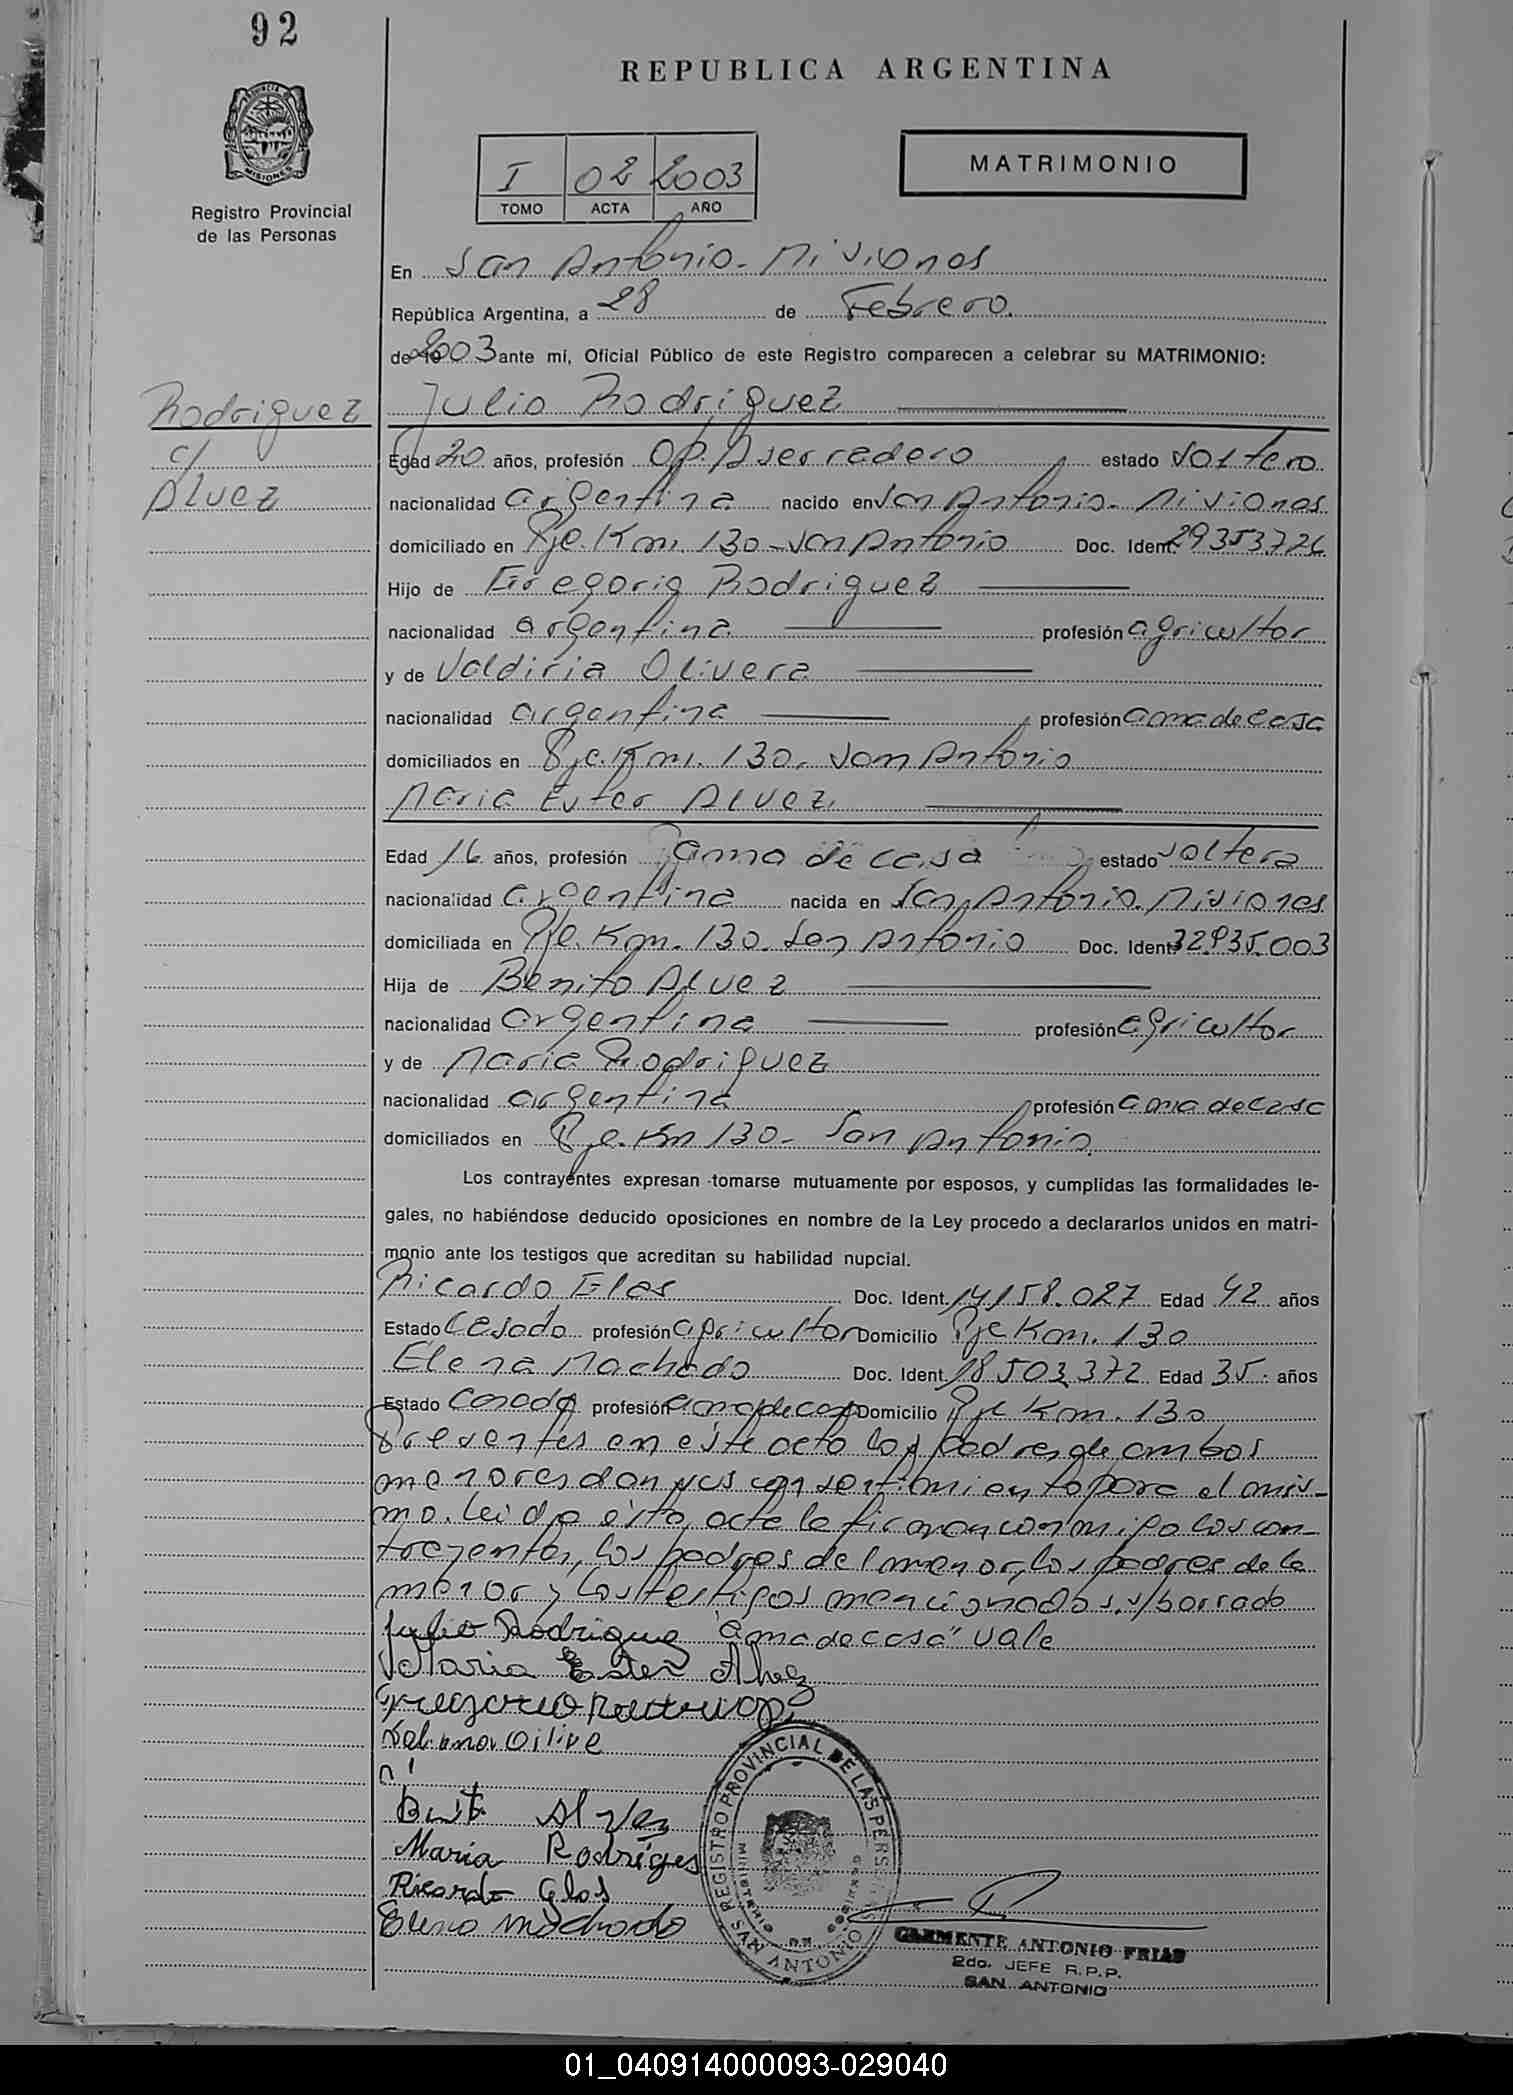 92
REPUBLICA ARGENTINA
MISIONES
Registro Provincial
de las Personas
I 02 2003
TOMO ACTA AÑO
MATRIMONIO
En San Antonio - Misiones
República Argentina, a 28 de Febrero
de 2003 ante mí, Oficial Público de este Registro comparecen a celebrar su MATRIMONIO:
Rodriguez
c/
Alvez
Julio Rodriguez
Edad 20 años, profesión Op. Aserradero estado soltero
nacionalidad argentina nacido en San Antonio - Misiones
domiciliado en Pje. Km. 130 - San Antonio Doc. Ident. 29353726
Hijo de Gregorio Rodriguez
nacionalidad argentina profesión agricultor
y de Valdiria Olivera
nacionalidad argentina profesión ama de casa
domiciliados en Pje. Km. 130. San Antonio
Maria Ester Alvez
Edad 16 años, profesión ama de casa estado soltera
nacionalidad argentina nacida en San Antonio. Misiones
domiciliada en Pje. Km. 130. San Antonio Doc. Ident. 32.935.003
Hija de Benito Alvez
nacionalidad argentina profesión agricultor
y de Maria Rodriguez
nacionalidad argentina profesión ama de casa
domiciliados en Pje. Km 130 - San Antonio.
Los contrayentes expresan tomarse mutuamente por esposos, y cumplidas las formalidades le-
gales, no habiéndose deducido oposiciones en nombre de la Ley procedo a declararlos unidos en matri-
monio ante los testigos que acreditan su habilidad nupcial.
Ricardo Glas Doc. Ident. 14158.027 Edad 42 años
Estado casado profesión agricultor Domicilio Pje Km. 130
Elena Machado Doc. Ident. 18503372 Edad 35 años
Estado casada profesión ama de casa Domicilio Pje Km. 130
Presentes en este acto los padres de ambos
menores dan sus consentimiento para el mis-
mo. Leida ésta acta la firman conmigo los con-
trayentes, los padres del menor, los padres de la
menor y los testigos mencionados. s/borrado
"ama de casa" vale
Julio Rodrigue
Maria Ester Alvez
Olive
Alvez
Maria Rodriges
Ricardo Glas
Elena Machado
REGISTRO PROVINCIAL DE LAS PERSONAS
MINISTERIO DE GOBIERNO
SAN ANTONIO
CLEMENTE ANTONIO FRIAS
2do. JEFE R.P.P.
SAN ANTONIO
01_040914000093-029040